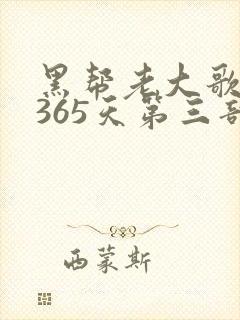 黑帮老大歌
365天第三部
西蒙斯